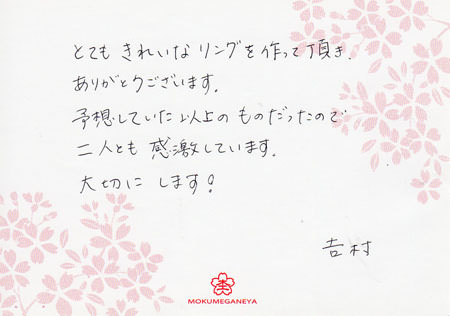 とてもきれいなリングを作って頂き.
ありがとうございます.
予想していた以上のものだったので
二人とも感激しています.
大切にします!
吉村
MOKUMEGANEYA